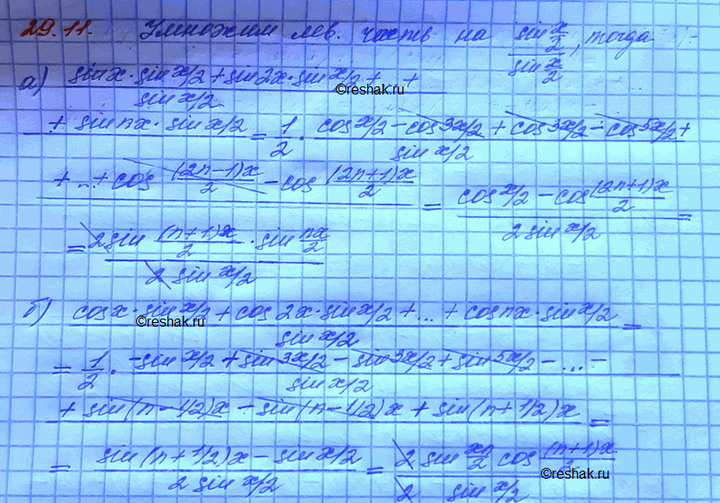 29.11. Умножим лев. часть на sin x/2 / sin x/2, тогда
а) sinx·sin x/2 + sin2x·sin x/2 + … +
sin x/2
©reshak.ru
+ sinnx·sin x/2 = 1/2 · cos x/2 - cos 3x/2 + cos 3x/2 - cos 5x/2 +
sin x/2
+ … + cos (2n-1)x/2 - cos (2n+1)x/2 = cos x/2 - cos (2n+1)x/2 / 2 sin x/2 =
= 2 sin (n+1)x/2 · sin nx/2
2 sin x/2
б) cosx·sin x/2 + cos 2x·sin x/2 + … + cosnx·sin x/2 =
©reshak.ru
sin x/2
= 1/2 · -sin x/2 + sin 3x/2 - sin 3x/2 + sin 5x/2 - … -
sin x/2
+ sin(n-1/2)x - sin(n-1/2)x + sin(n+1/2)x =
= sin(n+1/2)x - sin x/2 / 2 sin x/2 = 2 sin nx/2 cos (n+1)x/2 / 2 sin x/2
©reshak.ru